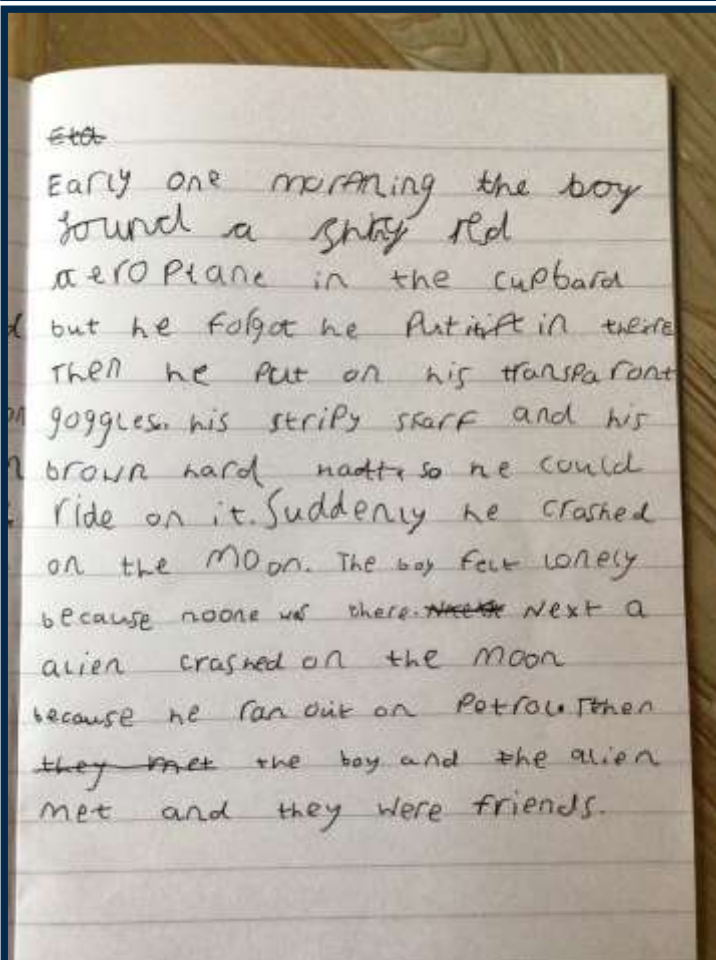 Eta
Early one morning the boy
found a shiny red
aeroplane in the cupbard
but he folgot he Put it in there
Then he Put on his transparont
goggles. his stripy skarf and his
brown hard hatt, so he could
ride on it. Suddenly he crashed
on the Moon. The boy felt lonely
because noone was there. Next a
alien crashed on the moon
because he ran out on Petrol. then
they met the boy and the alien
met and they were friends.